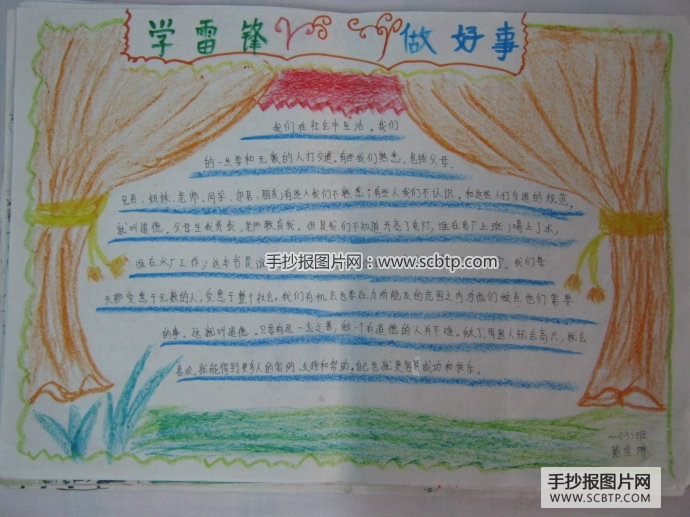 学雷锋 做好事
我们在社会中生活。我们
的一生要和无数的人打交道。有些我们熟悉,包括父母、
兄弟、姐妹、老师、同学、邻居、朋友;有些人我们不熟悉;有些人我们不认识。和这些人打交道的规范,
就叫道德。父母生我养我,老师教育我。但是我们不知道开亮了电灯,谁在电厂上班;喝上了水,
谁在水厂工作;这本书是谁
手抄报图片网 www.scbtp.com
我们每
天都受惠于无数的人,受惠于整个社会。我们有机会也要在力所能及的范围之内为他们做点他们需要
的事。这就叫道德。只要有这一念之善,做一个有道德的人并不难。做了,周围人就会高兴,就会
喜欢,就能得到更多人的容纳、支持和帮助。自己也就更容易成功和快乐。
一(3)班
手抄报图片网
WWW.SCBTP.COM